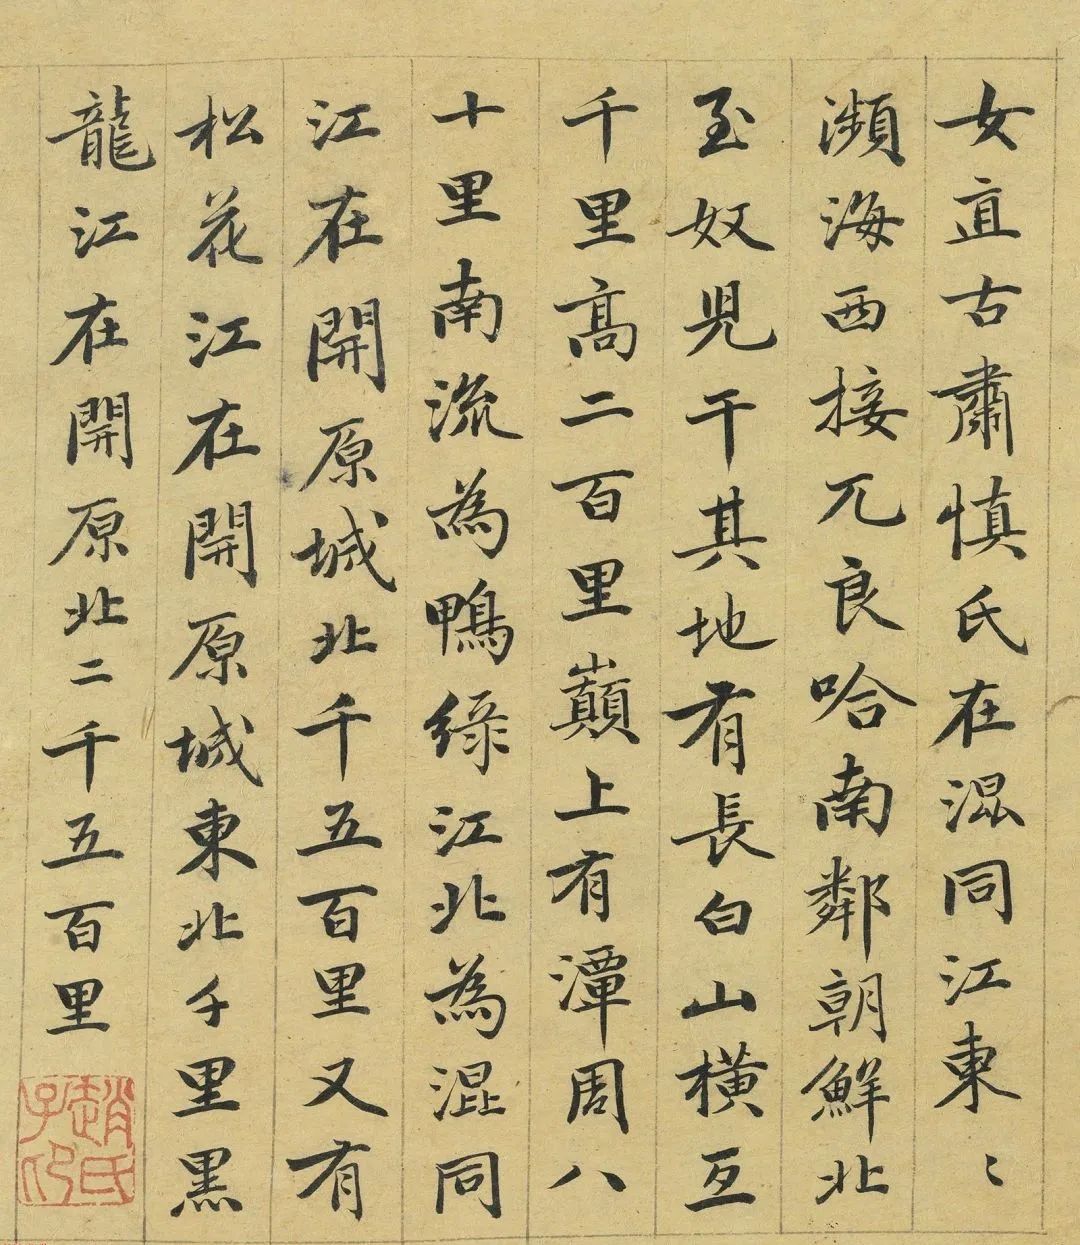 女直古肅慎氏在混同江東〻
瀕海西接兀良哈南鄰朝鮮北
至奴児干其地有長白山橫亙
千里高二百里巔上有潭周八
十里南流為鴨綠江北為混同
江在開原城北千五百里又有
松花江在開原城東北千里黑
龍江在開原北二千五百里
趙氏子印